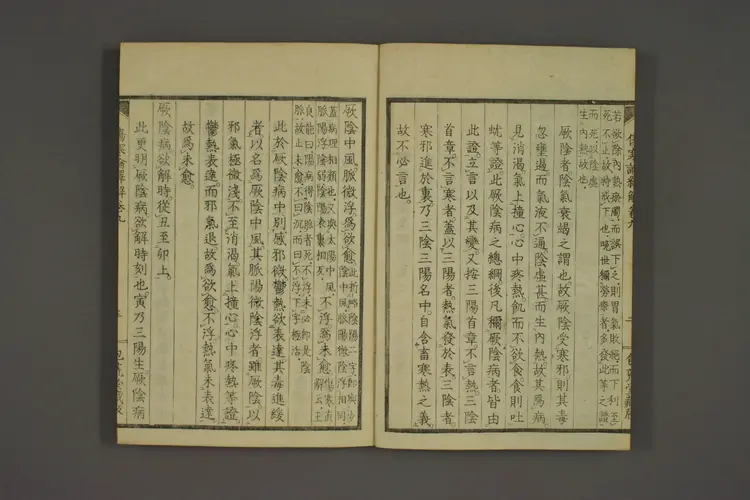 若欲除內熱療膚而誤下之則胃氣敗絕而下利至
死不止故特戒下也晚世稱勞瘵者多發此等之證
而死以陰虛
生內熱故也
厥陰者陰氣衰竭之謂也故厥陰受寒邪則其毒
忽壅遏而氣液不通陰虛甚而生內熱故其爲病
見消渴氣上撞心心中疼熱飢而不欲食食則吐
蚘等證此厥陰病之總綱後凡稱厥陰病者皆由
此證立言以及其變又按三陽首章不言熱三陰
首章不言寒者蓋以三陽者熱氣發於表三陰者
寒邪進於裏乃三陰三陽名中自含畜寒熱之義
故不必言也
厥陰中風脈微浮爲欲愈不浮爲未愈
此於厥陰病中別感邪微鬱熱欲表達其毒進緩
者以名爲厥陰中風其脈陽微陰浮者雖厥陰以
邪氣極微淺不至消渴氣上撞心心中疼熱等證
鬱熱表達而邪氣退故爲欲愈不浮熱氣未表達
故爲未愈
厥陰病欲解時從丑至卯上
此更明厥陰病欲解時刻也寅乃三陽生厥陰病